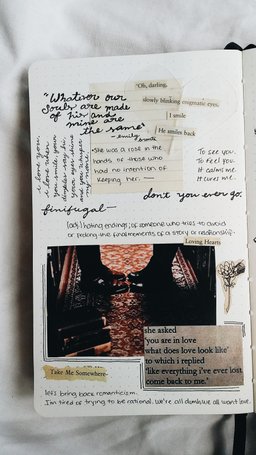 "Oh, darling,
slowly blinking enigmatic eyes.
I smile
He smiles back
"Whatever our
souls are made
of his and
mine are
the same"
- emily
i love you.
i love when
you smile, your
and you whisper
my name.
• she was a rose in the
hands of those who
had no intention of
keeping her. —
To see you.
To feel you.
It calms me.
It cures me.
don't you ever go.
finifugal—
(adj) hating endings; of someone who tries to avoid
or prolong the final moments of a story or relationship.
Loving Hearts
she asked
'you are in love
what does love look like'
to which i replied
'like everything i've ever lost
come back to me.'
Take Me Somewhere-
let's bring back romanticism.
I'm tired of trying to be rational. we're all dumb, we all want love.